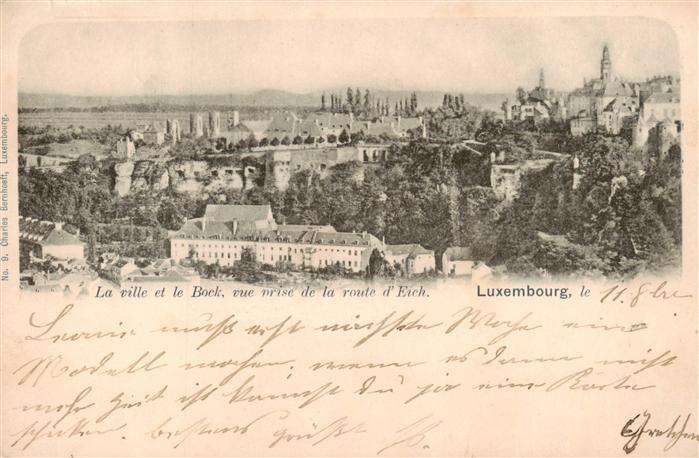 No. 9. Charles Bernhoeft, Luxembourg.
La ville et le Bock, vue prise de la route d'Eich.
Luxembourg, le 11. 8bre
Leonie muß erst nächste Woche ein
Modell machen. wenn es dann nicht
mehr Zeit ist kannst du ja eine Karte
schicken. bestens grüßt
Gretchen